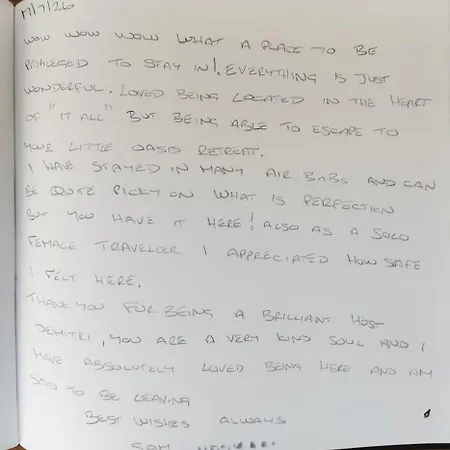 17/7/26
WOW WOW WOW WHAT A PLACE TO BE
PRIVILEGED TO STAY IN! EVERYTHING IS JUST
WONDERFUL. LOVED BEING LOCATED IN THE HEART
OF "IT ALL" BUT BEING ABLE TO ESCAPE TO
YOUR LITTLE OASIS RETREAT.
I HAVE STAYED IN MANY AIR B&BS AND CAN
BE QUITE PICKY ON WHAT IS PERFECTION
BUT YOU HAVE IT HERE! ALSO AS A SOLO
FEMALE TRAVELLER I APPRECIATED HOW SAFE
I FELT HERE.
THANK YOU FOR BEING A BRILLIANT HOST
DEMITRI, YOU ARE A VERY KIND SOUL AND I
HAVE ABSOLUTELY LOVED BEING HERE AND AM
SAD TO BE LEAVING
BEST WISHES ALWAYS
SAM